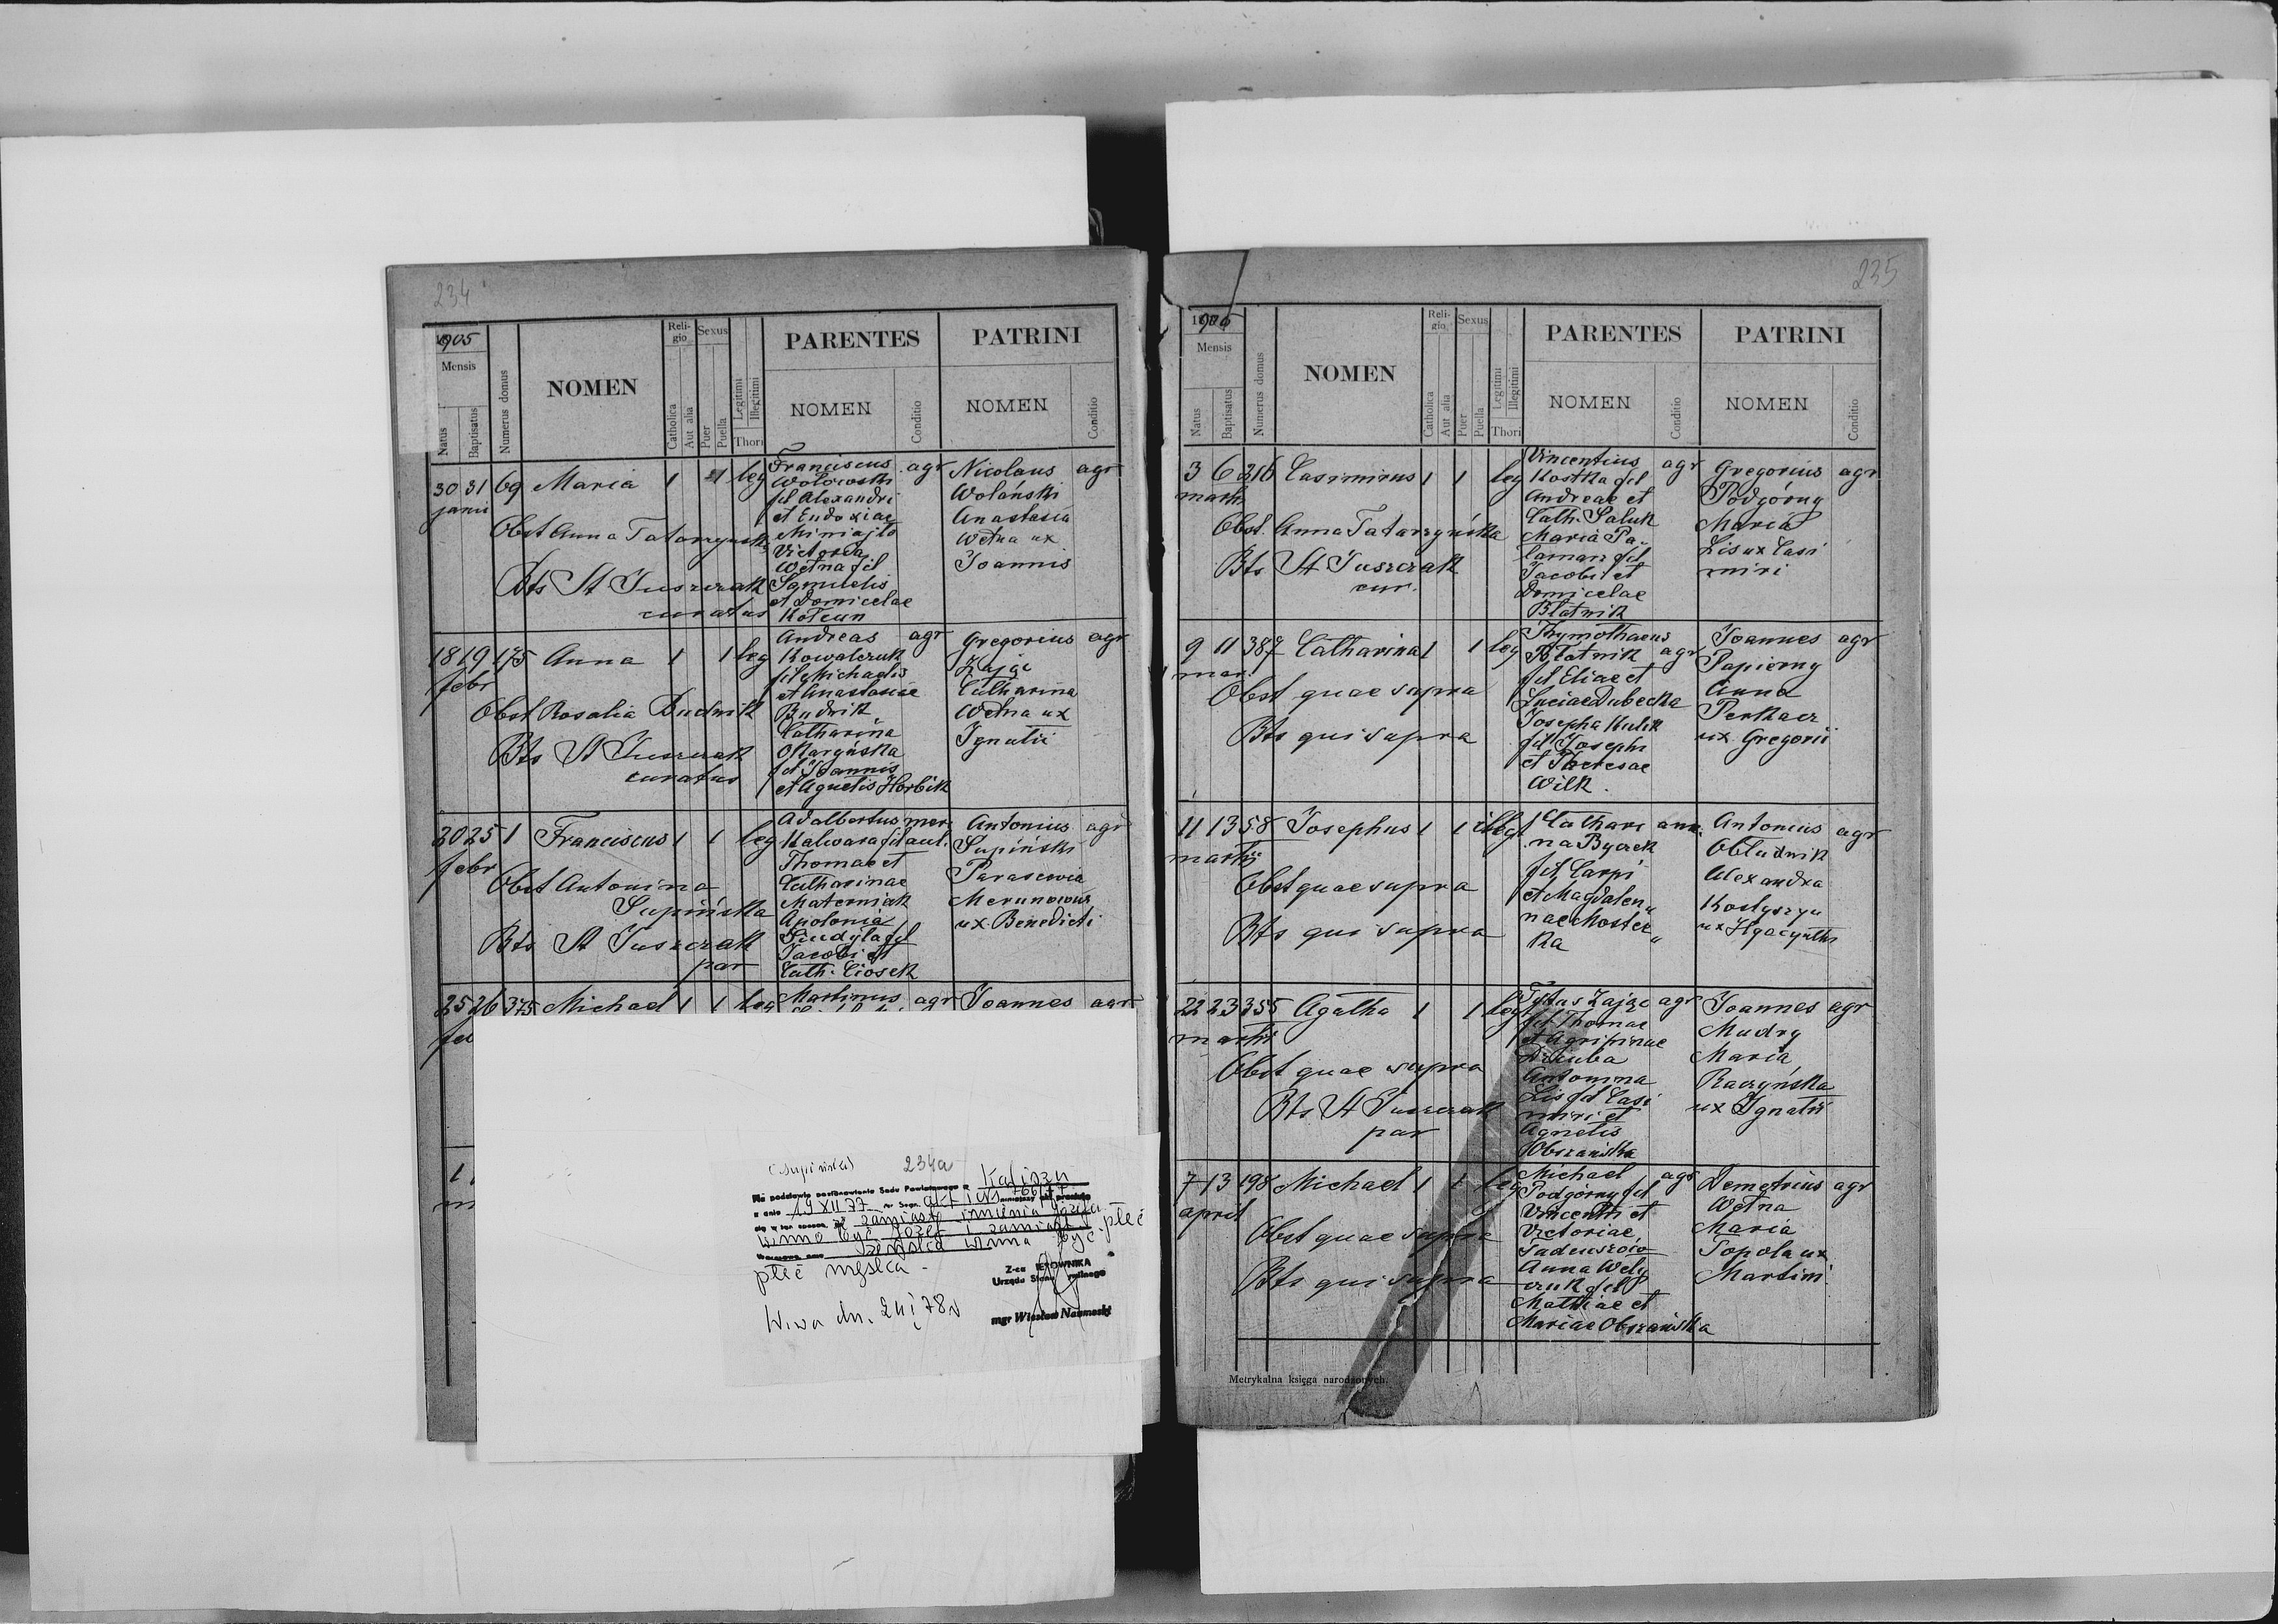 234
1905
Mensis
Natus
Baptisatus
Numerus domus
NOMEN
Reli-
gio
Catholica
Aut alia
Sexus
Puer
Puella
Legitimi
Illegitimi
Thori
PARENTES
NOMEN
Conditio
PATRINI
NOMEN
Conditio
30 31 69 Maria 1 1 leg
janii
Obst Anna Tatarzyńska
Bts St Juszczak
curatus
Franciscus agr
Wołowski
fil Alexandri
et Eudoxiae
Miniajło
Victoria
Wetna fil
Samuelis
et Domicelae
Kołcun
Nicolaus agr
Wolański
Anastasia
Wetna ux
Joannis
18 19 175 Anna 1 1 leg
febr
Obst Rosalia Budnik
Bts St Juszczak
curatus
Andreas agr
Kowalczuk
fil Michaelis
et Anastasiae
Budnik
Catharina
Okaryńska
fil Joannis
et Agnetis Horbik
Gregorius agr
Zając
Catharina
Wetna ux
Ignatii
20 25 1 Franciscus 1 1 leg
febr
Obst Antonina
Supińska
Bts St Juszczak
par
Adalbertus mer
Kalwara fil aul.
Thomae et
Catharinae
Materniak
Apolonia
fil
Jacobi et
Cath. Ciosek
Antonius agr
Supiński
Parascevia
Merunowicz
ux Benedicti
25 26 375 Michael 1 1 leg
fe
Martinus agr
Joannes agr
1
m
(Supińska) 234a
Na podstawie postanowienia Sądu Powiatowego w Kaliszu
z dnia 19 XII 77 nr Sygn.
się w ten sposób, że zamiast imienia Józefa
winno być Józef i zamiast płeć
żeńska winna być
płeć męska.
Z-ca KIEROWNIKA
Urzędu Stanu Cywilnego
W-wa dn. 2 II 78 r
mgr Wiesław Naumoski
235
1905
Mensis
Natus
Baptisatus
Numerus domus
NOMEN
Reli-
gio
Catholica
Aut alia
Sexus
Puer
Puella
Legitimi
Illegitimi
Thori
PARENTES
NOMEN
Conditio
PATRINI
NOMEN
Conditio
3 6 216 Casimirus 1 1 leg
martii
Obst. Anna Tatarzyńska
Bts St Juszczak
cur.
Vincentius agr
Kostka fil
Andreae et
Cath. Saluk
Maria Pa-
laman fil
Jacobi et
Domicelae
Błatnik
Gregorius agr
Podgórny
Maria
Lis ux Casi
miri
9 11 387 Catharina 1 1 leg
mar.
Obst quae supra
Bts qui supra
Thymothaeus
Błatnik agr
fil Eliae et
Luciae Dubecka
Josepha Kulik
fil Josephi
et Theresae
Wilk.
Joannes agr
Papierny
Anna
Perkacz
ux. Gregorii
11 13 58 Josephus 1 1 illegt
martii
Obst quae supra
Bts qui supra
Cathari anc.
na Byczek
fil Carpi
et Magdalen„
nae Moster„
ka
Antonius agr
Obłudnik
Alexandra
Kostyszyn
ux Hyacynthi
22 23 355 Agatha 1 1 leg
martii
Obst quae supra
Bts St Juszczak
par
Tytus Zając agr
fil Thomae
et Agripinae
Dziuba
Antonina
Lis fil Casi
miri et
Agnetis
Obszańska
Joannes agr
Mudry
Maria
Raczyńska
ux Ignatii
7 13 198 Michael 1 1 leg
april
Obst quae supra
Bts qui supra
Michael agr
Podgórny fil
Vincentii et
Victoriae
Tadeuszów
Anna Wely
czuk fil
Mathiae et
Mariae Obszańska
Demetrius agr
Wetna
Maria
Topola ux
Martini
Metrykalna księga narodzonych.